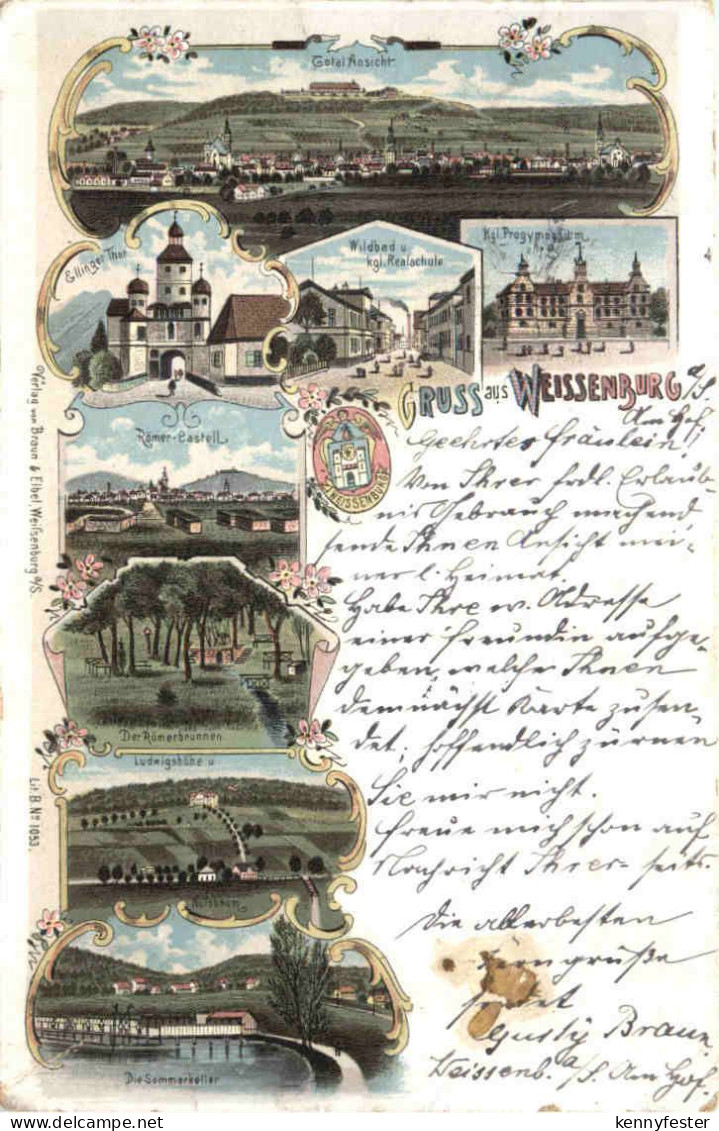 Total Ansicht
Ellinger Thor
Wildbad u
kgl. Realschule
Kgl. Progymnasium
GRUSS aus WEISSENBURG a/S.
Am Hof,
WEISSENBURG
Römer-Castell
Der Römerbrunnen
Ludwigshöhe u
Die Sommerkeller
Verlag von Braun & Elbel Weissenburg a/S.
Lit. B. No 1053.
Geehrtes Fräulein!
Von Ihrer frdl. Erlaub-
nis Gebrauch machend
sende Ihnen Ansicht mei-
ner l. Heimat.
Habe Ihre w. Adresse
einer Freundin aufge-
geben, welche Ihnen
demnächst Karte zusen-
det; hoffendlich zürnen
Sie mir nicht.
Freue mich schon auf
Nachricht Ihrer-seits.
Die allerbesten
grüße
sendet
Gusty Braun
Weissenb. a/S. Am Hof.
kennyfester